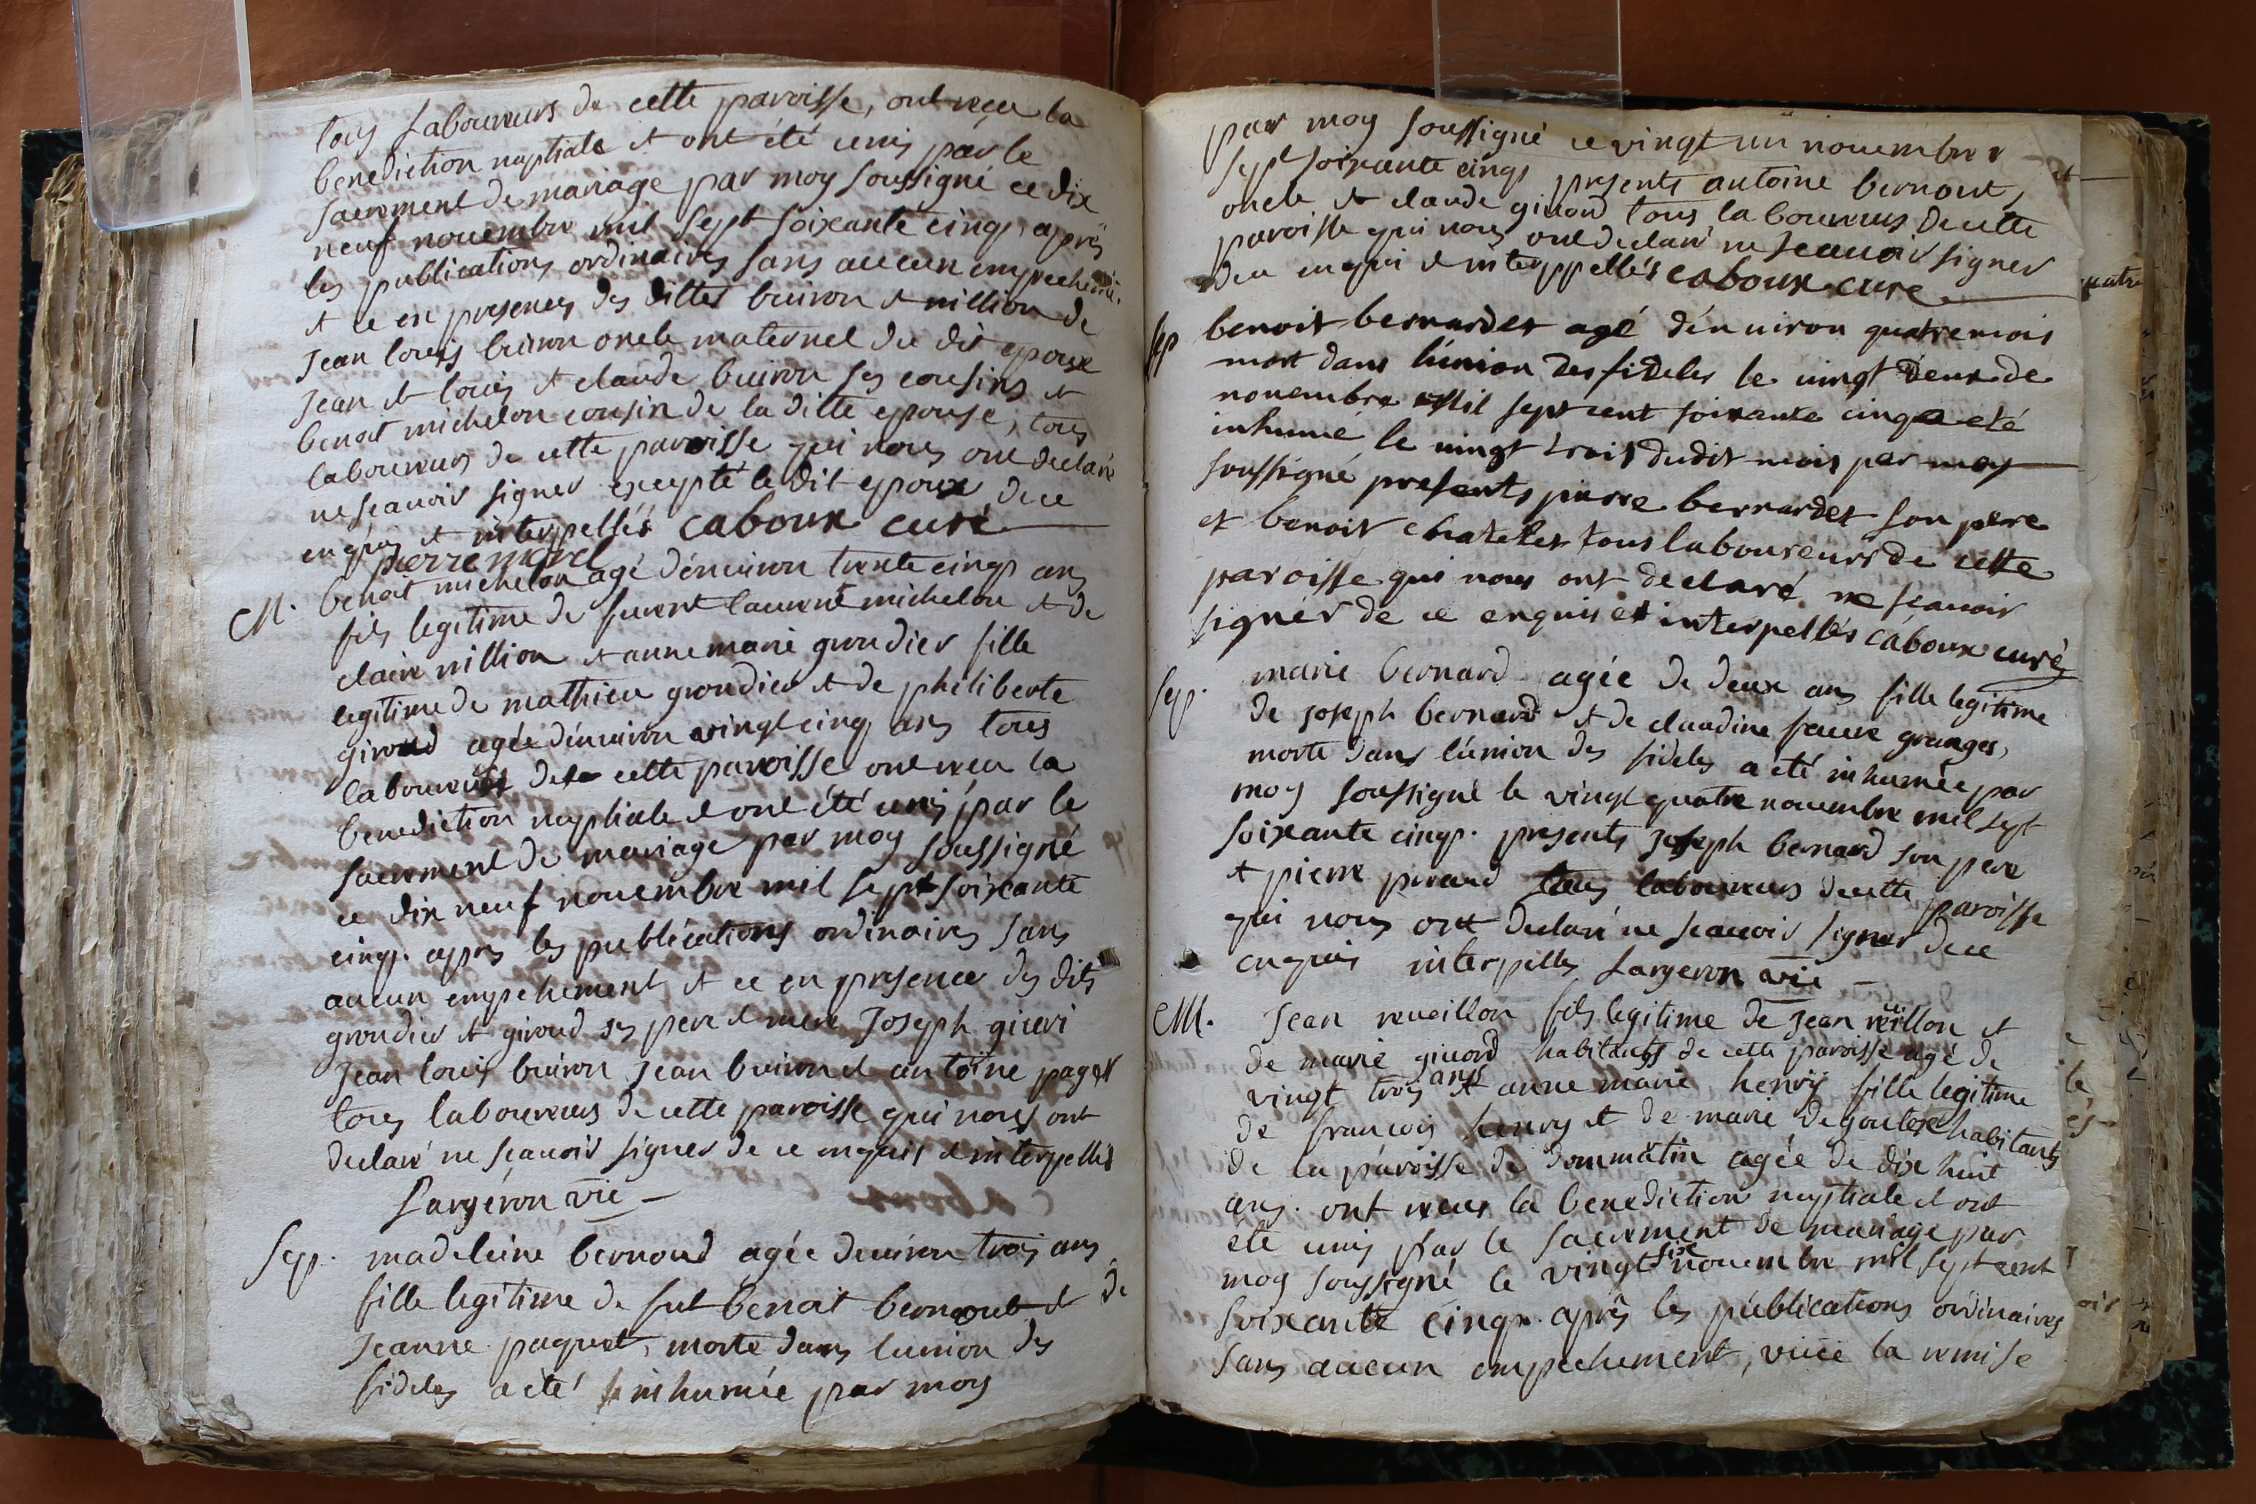 tous laboureurs de cette paroisse, ont reçu la
benediction nuptiale et ont été unis par le
sacrement de mariage par moy soussigné ce dix
neuf novembre mil sept soixante cinq après
les publications ordinaires sans aucun empechem.
et ce en presences des dittes buiron et million de
Jean louis buiron oncle maternel du dit epoux
Jean et louis et claude buiron ses cousins et
benoit michelon cousin de la ditte epouse, tous
laboureurs de cette paroisse qui nous ont declaré
ne scavoir signer excepté le dit epoux de ce
enquis et interpellés caboux curé
pierre morel
M. benoit michelon agé dénviron trente cinq ans
fils legitime de laurent michelon et de
claire million et anne marie grondier fille
legitime de mathieu grondier et de philiberte
giroud agée dénviron vingt cinq ans tous
laboureurs de cette paroisse ont reçu la
benediction nuptiale et ont été unis par le
sacrement de mariage par moy soussigné
ce dix neuf novembre mil sept soixante
cinq. apres les publications ordinaires sans
aucun empechement, et ce en presence des dits
grondier et giroud ses pere et mere Joseph giveri
Jean louis buiron Jean buiron et antoine paget
tous laboureurs de cette paroisse qui nous ont
declaré ne scavoir signer de ce enquis et interpellés
Largeron vic
Sep. madeleine bernoud agée denviron trois ans
fille legitime de fut benoit bernout et de
Jeanne paquet, morte dans lunion des
fideles a été inhumée par moy
par moy soussigné ce vingt un novembre
sept soixante cinq presents antoine bernout,
oncle et claude givord tous laboureurs de cette
paroisse qui nous ont declaré ne scavoir signer
de ce enquis et interppellés caboux curé
sep benoit bernardet agé dénviron quatre mois
mort dans l'union des fideles le vingt deux de
novembre mil sept cent soixante cinq a eté
inhumé le vingt trois dudit mois par moy
soussigné presents pierre bernardet son pere
et benoit chatelet tous laboureurs de cette
paroisse qui nous ont declaré ne scavoir
signer de ce enquis et interpellés caboux curé
sep. marie bernard agée de deux ans fille legitime
de joseph bernard et de claudine faure granges,
morte dans l'union des fideles a été inhumée par
moy soussigné le vingt quatre novembre mil sept
soixante cinq. presents joseph bernard son pere
et pierre perraud tous laboureurs de cette paroisse
qui nous ont declaré ne scavoir signer de ce
enquis interpellés Largeron vic
M. Jean reveillon fils legitime de Jean reveillon et
de marie givord habitants de cette paroisse agé de
vingt trois ans et anne marie henry fille legitime
de françois henry et de marie Degoutes habitants
de la paroisse de dommatin agée de dix huit
ans. ont receus la benediction nuptiale et ont
été unis par le sacrement de mariage par
moy soussigné le vingt six novembre mil sept cent
soixante cinq. après les publications ordinaires
sans aucun empechement, vüe la remise